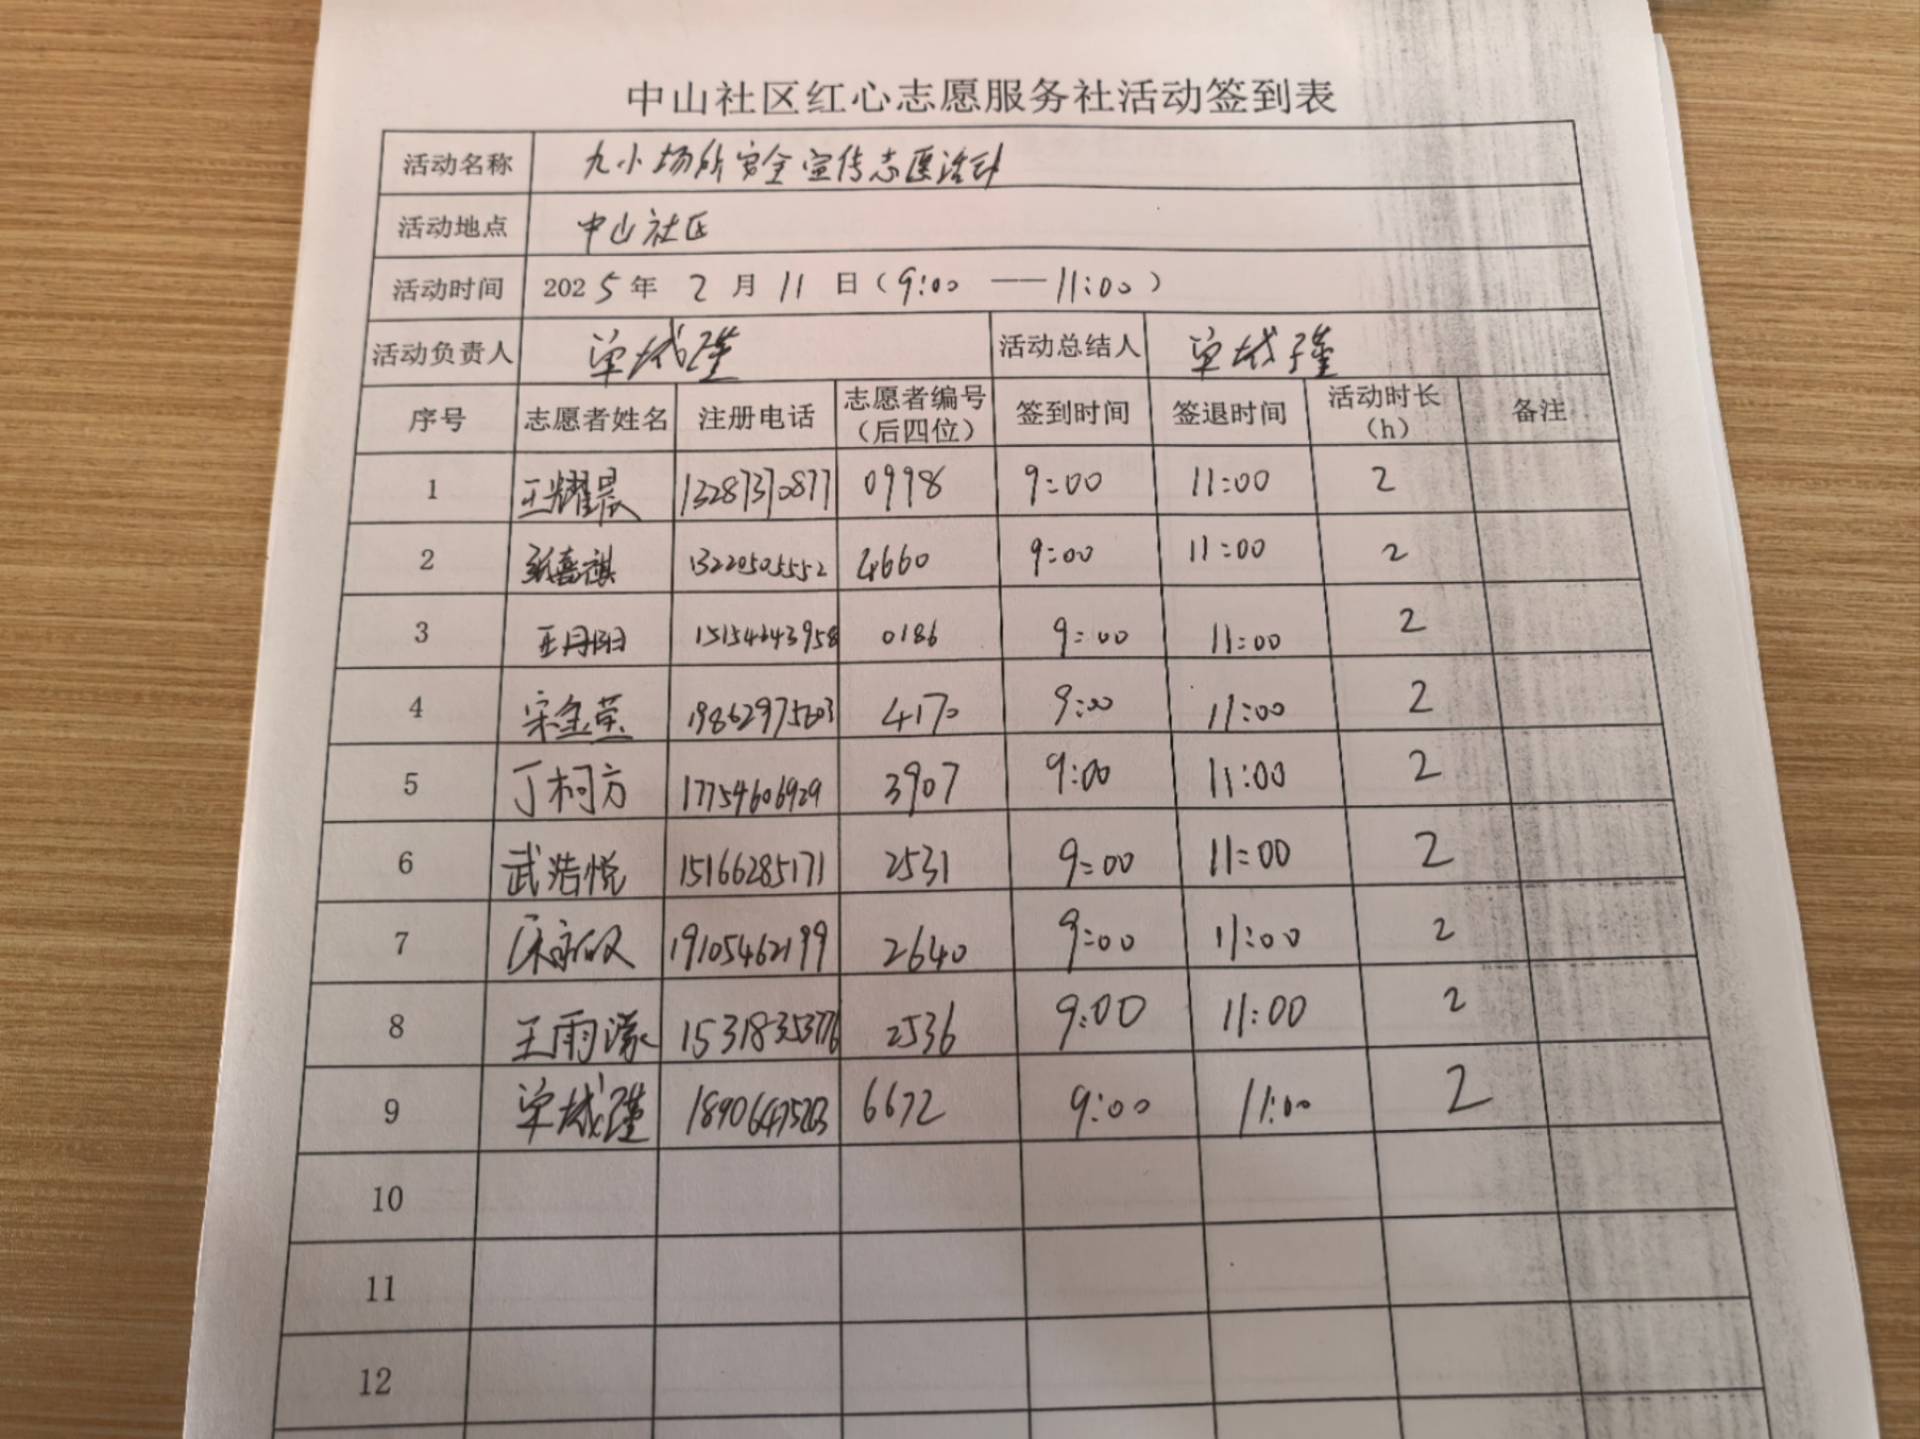 中山社区红心志愿服务社活动签到表
活动名称 九小场所安全宣传志愿活动
活动地点 中山社区
活动时间 2025年 2月 11 日（9:00 —— 11:00）
活动负责人 单城瑾 活动总结人 单城瑾
序号 志愿者姓名 注册电话 志愿者编号（后四位） 签到时间 签退时间 活动时长（h） 备注
1 王耀晨 13287370877 0998 9:00 11:00 2
2 张喜祺 13220505552 4660 9:00 11:00 2
3 王丹阳 15154643958 0186 9:00 11:00 2
4 宋金莹 19862975603 4170 9:00 11:00 2
5 丁柯方 17754606929 3907 9:00 11:00 2
6 武浩悦 15166285171 2531 9:00 11:00 2
7 19105462199 2640 9:00 11:00 2
8 王雨濛 15318353776 2536 9:00 11:00 2
9 单城瑾 6672 9:00 11:00 2
10
11
12